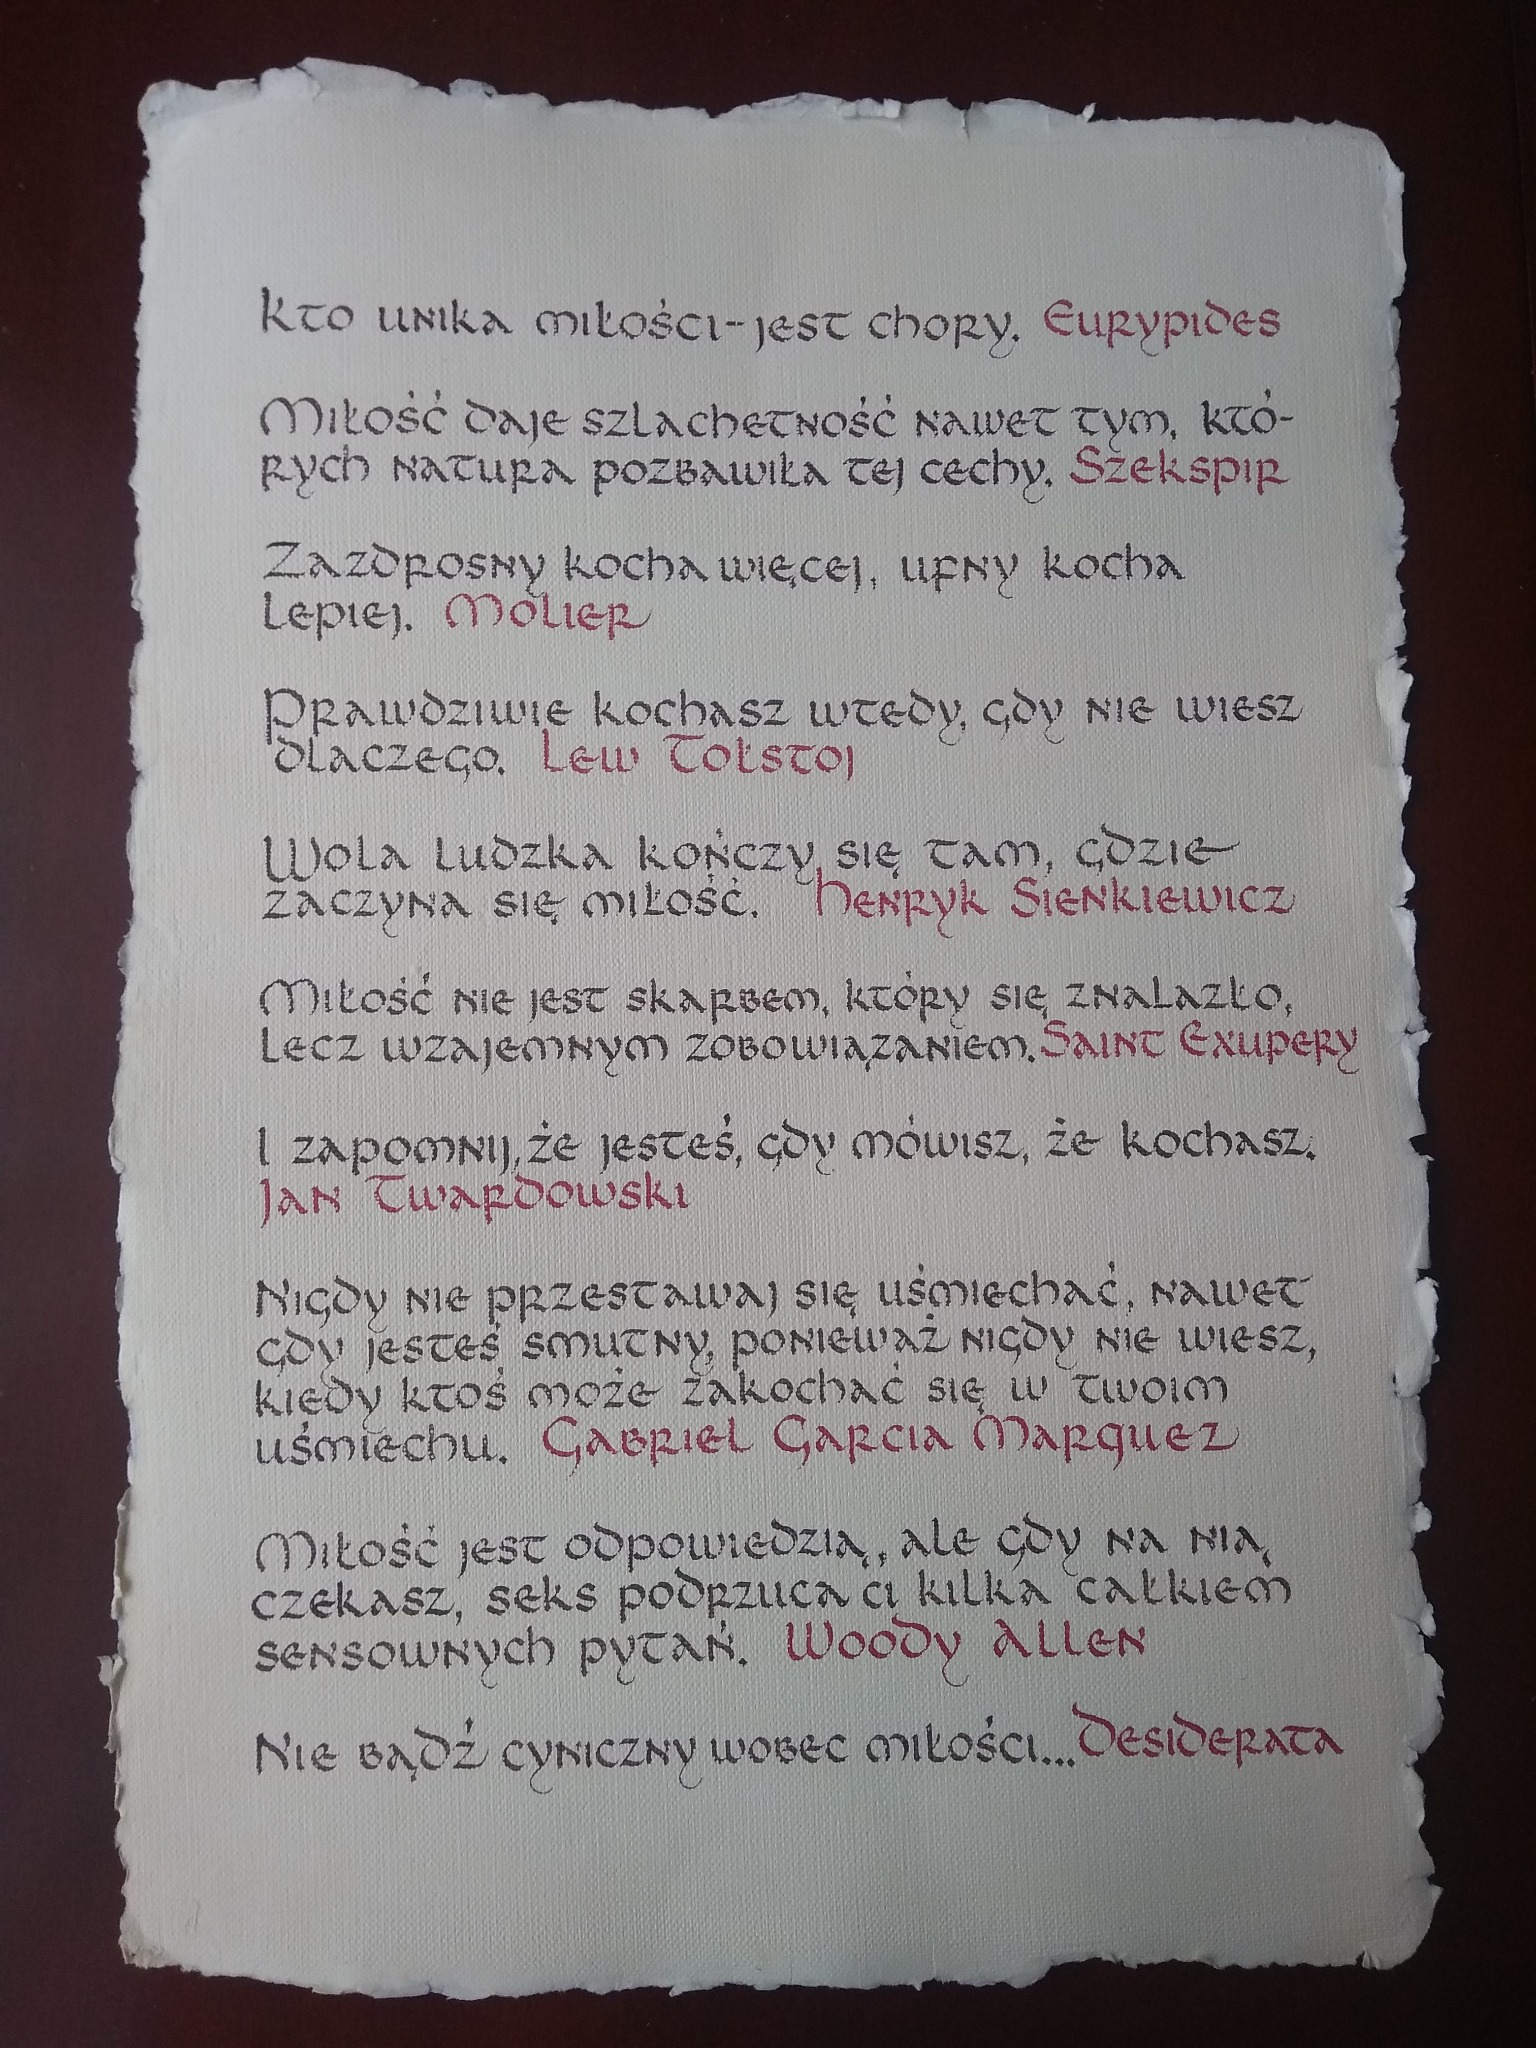 Kto unika miłości-jest chory. Eurypides
Miłość daje szlachetność nawet tym, któ-
rych natura pozbawiła tej cechy. Szekspir
Zazdrosny kocha więcej, ufny kocha
lepiej. Molier
Prawdziwie kochasz wtedy, gdy nie wiesz
dlaczego. Lew Tołstoj
Wola ludzka kończy się tam, gdzie
zaczyna się miłość. Henryk Sienkiewicz
Miłość nie jest skarbem, który się znalazło,
lecz wzajemnym zobowiązaniem. Saint Exupery
I zapomnij, że jesteś, gdy mówisz, że kochasz.
Jan Twardowski
Nigdy nie przestawaj się uśmiechać, nawet
gdy jesteś smutny, ponieważ nigdy nie wiesz,
kiedy ktoś może zakochać się w twoim
uśmiechu. Gabriel Garcia Marquez
Miłość jest odpowiedzią, ale gdy na nią
czekasz, seks podrzuca ci kilka całkiem
sensownych pytań. Woody Allen
Nie bądź cyniczny wobec miłości... Desiderata